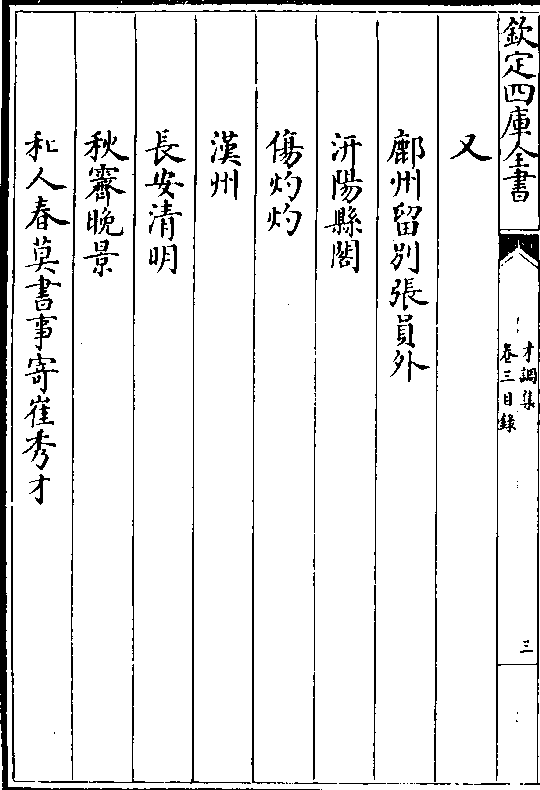 欽定四庫全書
才調集
卷三目錄
三
又
鄜州留別張員外
汧陽縣閣
傷灼灼
漢州
長安清明
秋霽晚景
和人春莫書事寄崔秀才